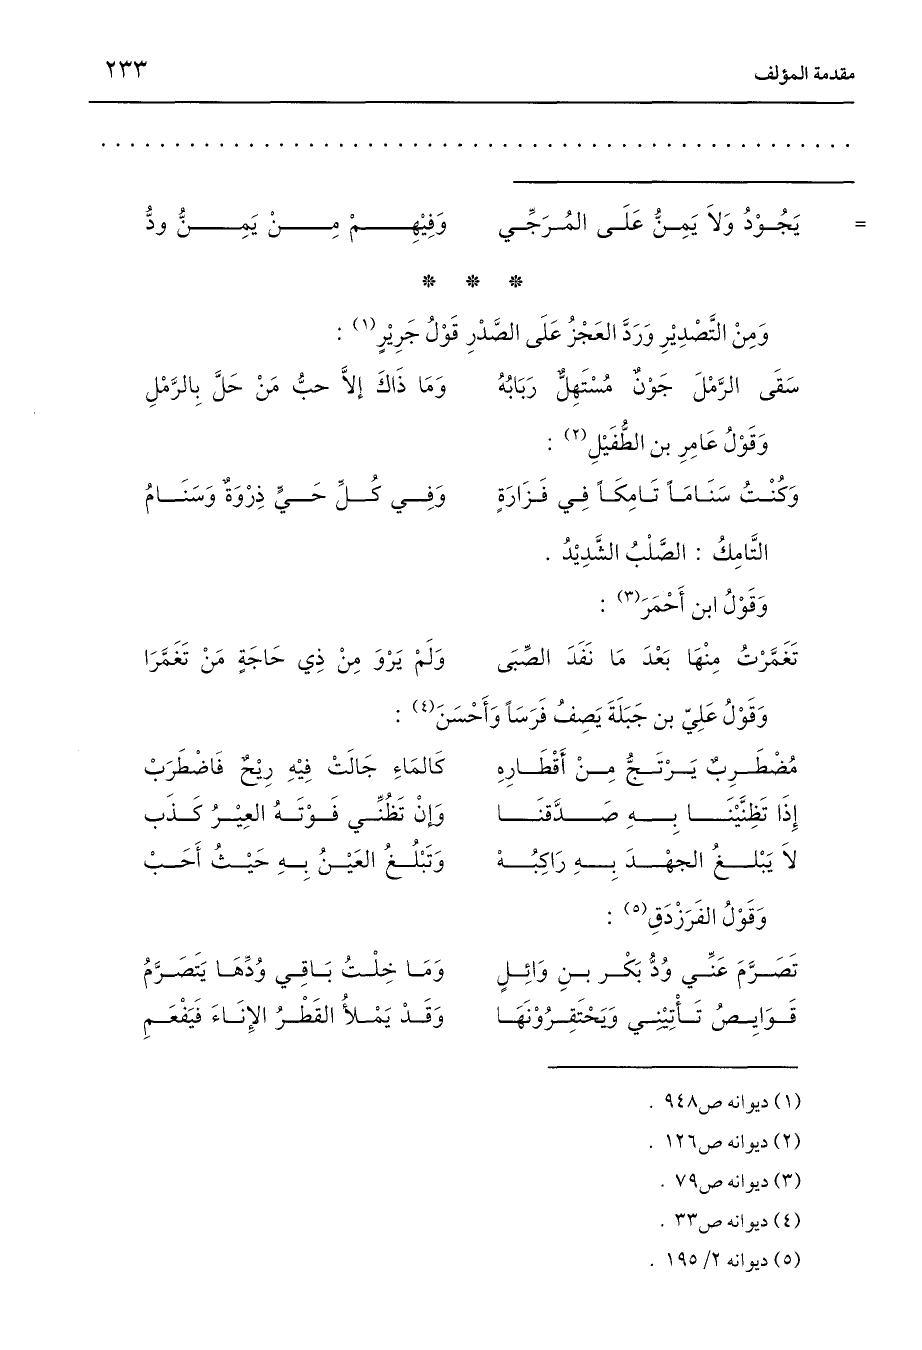 مقدمة المؤلف ٢٣٣
. . . . . . . . . . . . . . . . . . . . . . . . . . . . . . . . . . . . . . . . . . . . . . . . . . . .
= يَجُوْدُ وَلاَ يَمِنُّ عَلَى المُرَجِّي وَفِيْهِمْ مِنْ يَمِنُّ ودُّ
* * *
وَمِنْ التَّصْدِيْرِ وَرَدَّ العَجْزُ عَلَى الصَّدْرِ قَوْلُ جَرِيْرٍ(١) :
سَقَى الرَّمْلَ جَوْنٌ مُسْتَهِلٌّ رَبَابُهُ وَمَا ذَاكَ إلاَّ حبُّ مَنْ حَلَّ بِالرَّمْلِ
وَقَوْلُ عَامِرِ بن الطُّفَيْلِ(٢) :
وَكُنْتُ سَنَامَاً تَامِكَاً فِي فَزَارَةٍ وَفِي كُلِّ حَيٍّ ذِرْوَةٌ وَسَنَامُ
التَّامِكُ : الصَّلْبُ الشَّدِيْدُ .
وَقَوْلُ ابن أَحْمَرَ(٣) :
تَغَمَّرْتُ مِنْهَا بَعْدَ مَا نَفَدَ الصِّبَى وَلَمْ يَرْوَ مِنْ ذِي حَاجَةٍ مَنْ تَغَمَّرَا
وَقَوْلُ عَلِيّ بن جَبَلَةَ يَصِفُ فَرَسَاً وَأَحْسَنَ(٤) :
مُضْطَرِبٌ يَرْتَجُّ مِنْ أَقْطَارِهِ كَالمَاءِ جَالَتْ فِيْهِ رِيْحٌ فَاضْطَرَبْ
إِذَا تَظَنَّيْنَا بِهِ صَدَّقنَا وَإِنْ تَظُنِّي فَوْتَهُ العِيْرُ كَذَب
لاَ يَبْلغُ الجهْدَ بِهِ رَاكِبُهْ وَتَبْلُغُ العَيْنُ بِهِ حَيْثُ أَحَبْ
وَقَوْلُ الفَرَزْدَقِ(٥) :
تَصَرَّمَ عَنِّي وُدُّ بَكْر بنِ وَائِلٍ وَمَا خِلْتُ بَاقِي وُدِّهَا يَتَصَرَّمُ
قَوَارِصُ تَأْتِيْنِي وَيَحْتَقِرُوْنَهَا وَقَدْ يَمْلأُ القَطْرُ الإِنَاءَ فَيَفْعَمِ
(١) ديوانه ص٩٤٨ .
(٢) ديوانه ص١٢٦ .
(٣) ديوانه ص٧٩ .
(٤) ديوانه ص٣٣ .
(٥) ديوانه ٢/ ١٩٥ .